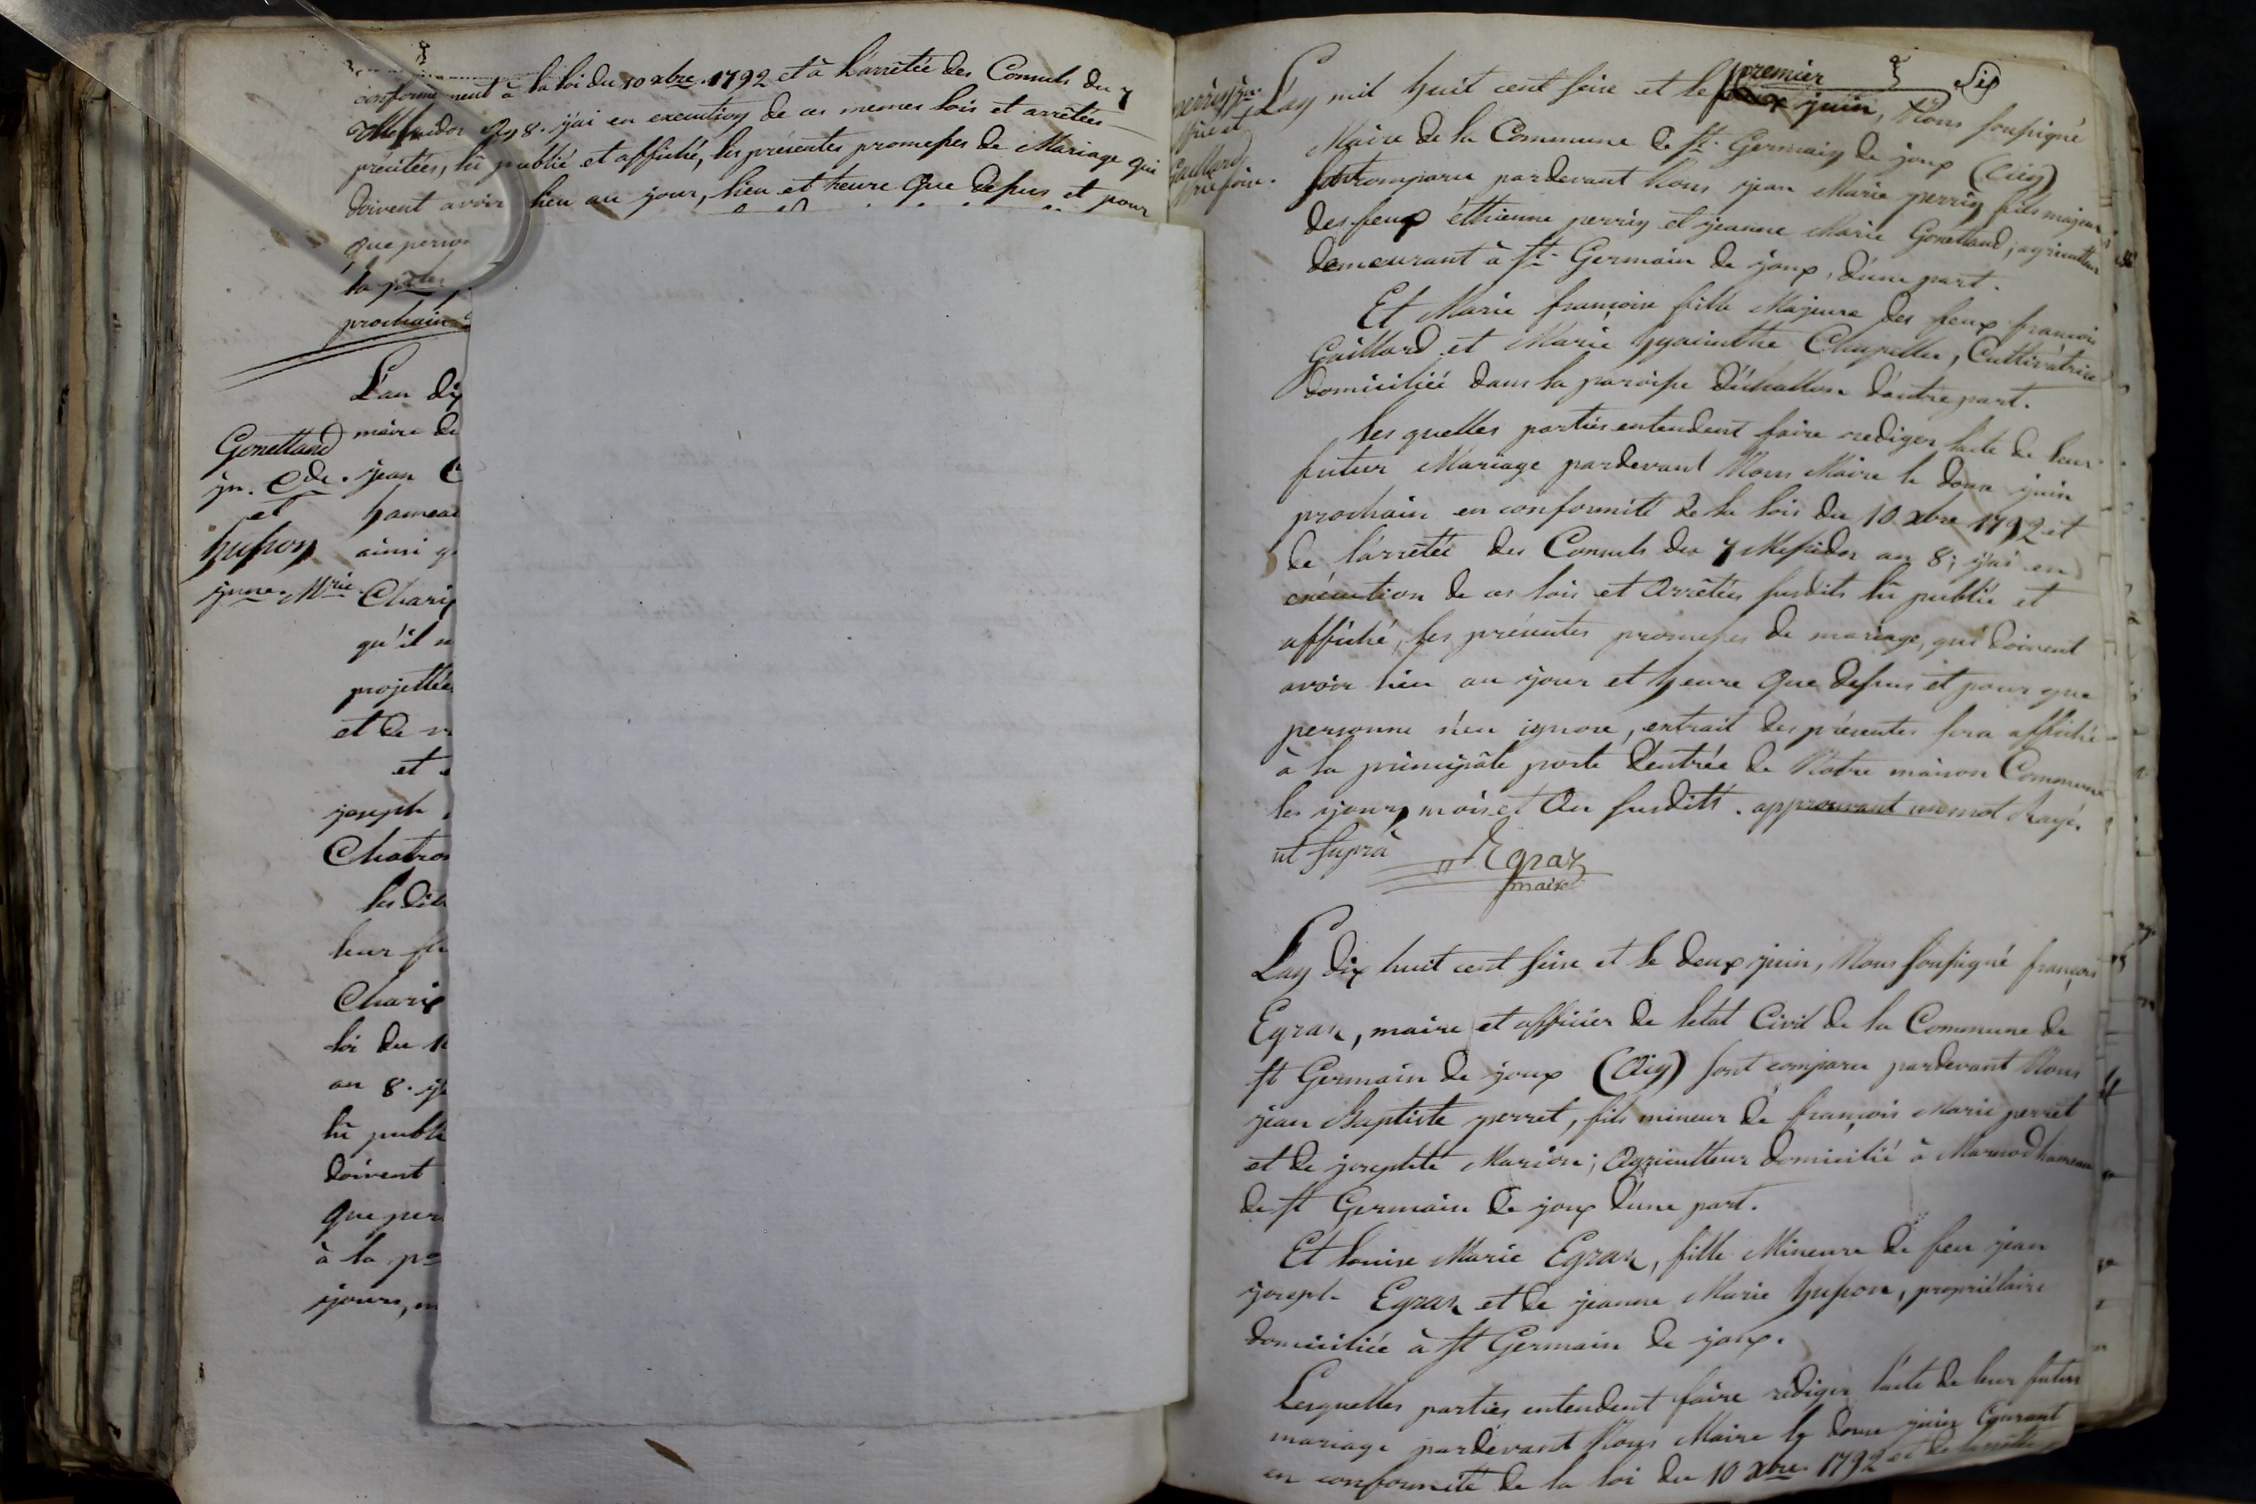 conformement à la loi du 10 xbre 1792 et à l'arrêtée des Consuls du 7
Messidor an 8. j'ai en execution de ces memes lois et arrêtées
précitées, lû publié et affiché, les présentes promesses de Mariage qui
doivent avoir lieu au jour, lieu et heure que dessus et pour
que perso
la
prochain
L'an di
Gonettand
maire de
jn. Cde. jean C
et
hamea
husson
ainsi q
jne. Mrie
Charix
qu'il
projettée
et de
et
joseph
Chatro
les dit
leur fu
Charix
loi du 1
an 8. j
lû publi
doivent
que per
à la p
jours, m
perrin
et
Gaillard
foise.
premier
Six
L'an mil huit cent seize et le juin, Nous soussigné
Maire de la Commune de St. Germain de joux (Ain)
sont comparu pardevant Nous jean Marie perrin fils majeur
des feux éthienne perrin et jeanne Marie Gonettand, agriculteur
demeurant à St. Germain de joux, d'une part.
Et Marie françoise fille Majeure des feux françois
Gaillard et Marie hyacinthe Chapelle, Cultivatrice
domiciliée dans la paroisse d'échallon d'autre part.
les quelles parties entendent faire rediger l'acte de leur
futur Mariage pardevant Nous Maire le douze juin
prochain en conformité de la loi du 10 xbre 1792 et
de l'arrêtée des Consuls du 7 Messidor an 8; j'ai en
exécution de ces lois et Arrêtées susdits lû publié et
affiché, les présentes promesses de mariage, qui doivent
avoir lieu au jour et heure que dessus et pour que
personne n'en ignore, extrait des présentes sera affiché
à la principâle porte d'entrée de Notre maison Commune
les jour, mois et An susdits. approuvant un mot Rayé.
ut suprà Egraz
maire
L'an dix huit cent seize et le deux juin, Nous soussigné françois
Egraz, maire et officier de l'état Civil de la Commune de
St Germain de joux (Ain) sont comparu pardevant Nous
jean Baptiste perret, fils mineur de françois Marie perret
et de josephte Marion; Agriculteur domicilié à Marnod hameau
de St Germain de joux d'une part.
Et louise Marie Egraz, fille Mineure de feu jean
joseph Egraz et de jeanne Marie husson, propriétaire
domiciliée à St Germain de joux.
Lesquelles parties entendent faire rediger l'acte de leur futur
mariage pardevant Nous Maire le douze juin Courant
en conformité de la loi du 10 xbre 1792 et de